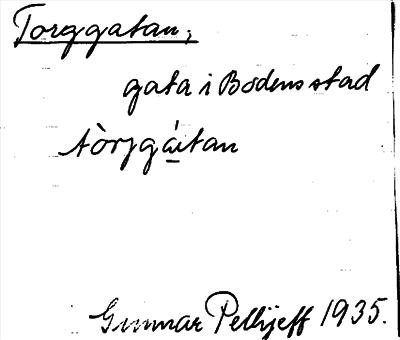 Torggatan,
gata i Bodens stad
tòrjgá̱tan
Gunnar Pellijeff 1935.